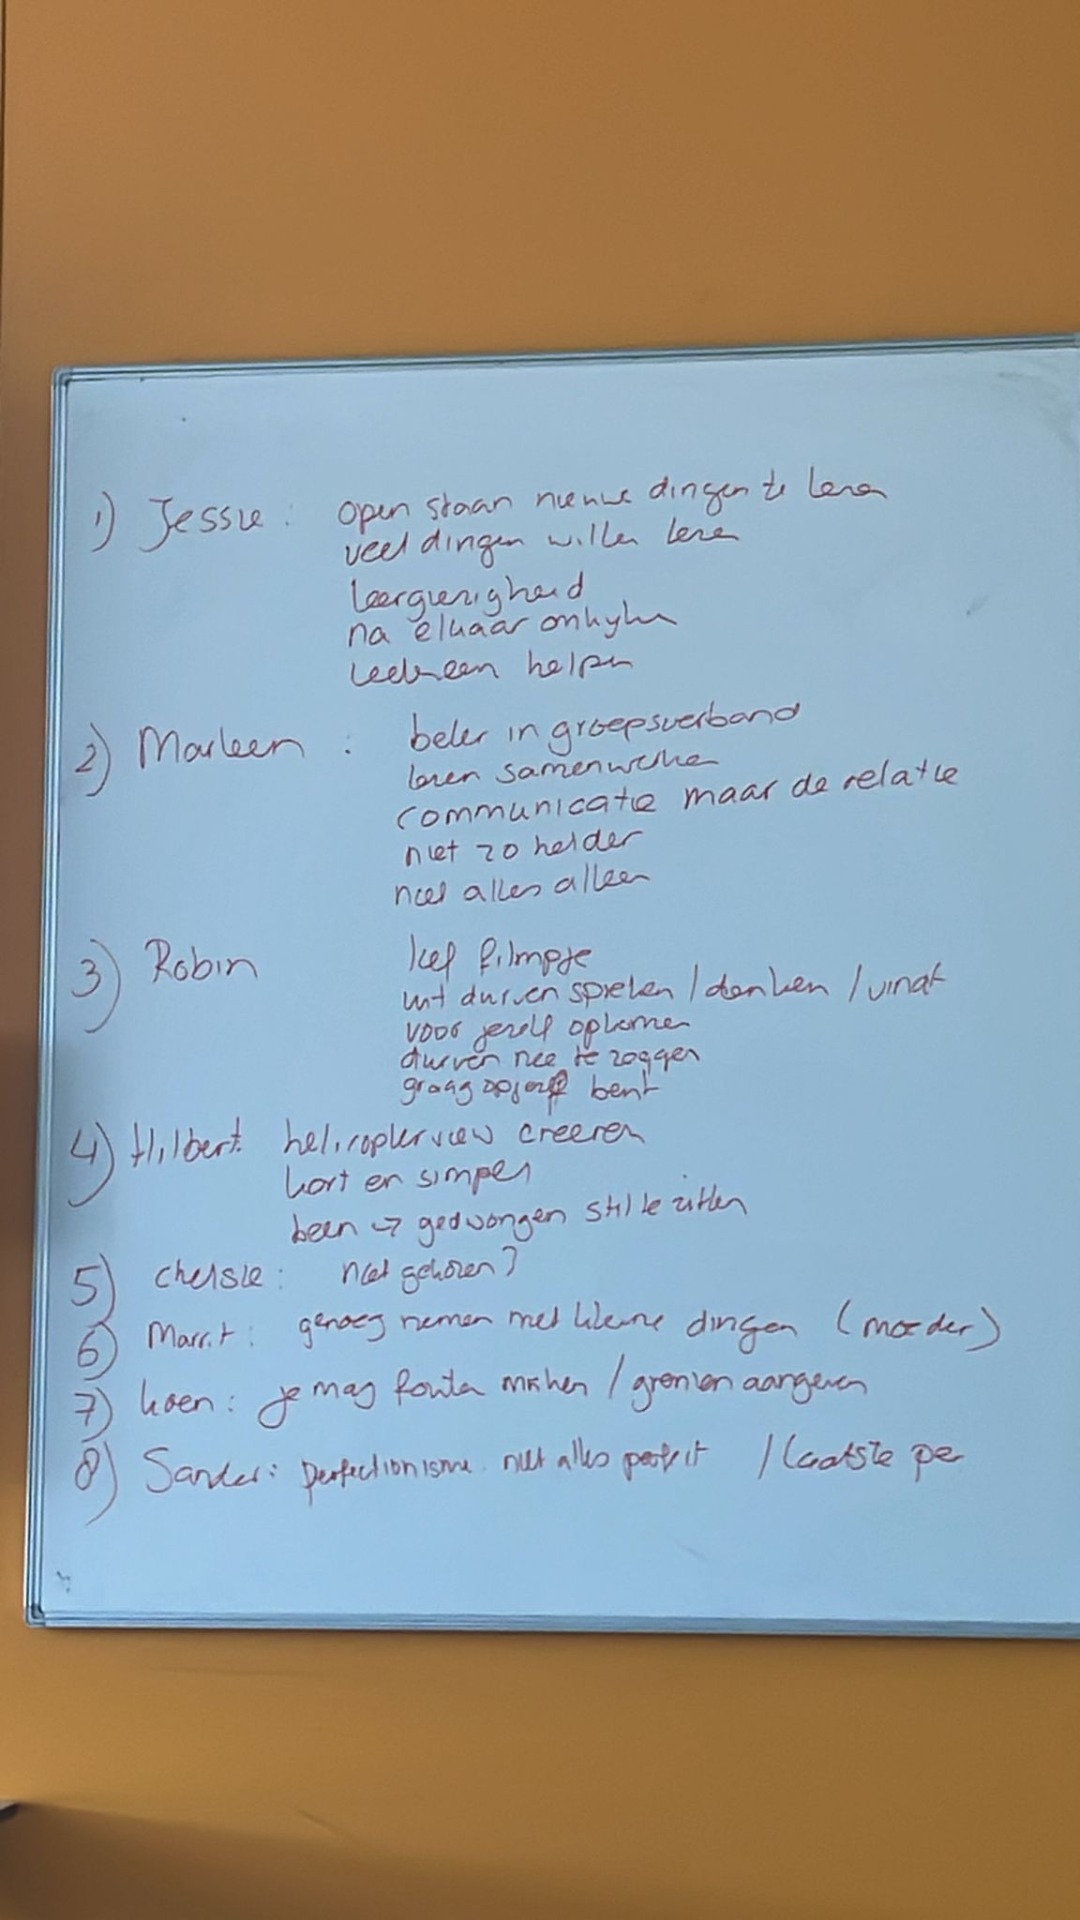 1) Jessie: open staan nieuwe dingen te leren
veel dingen willen leren
leergierigheid
na elkaar omkijken
iedereen helpen
2) Marleen: beter in groepsverband
leren samenwerken
communicatie maar de relatie
niet zo helder
niet alles alleen
3) Robin lief filmpje
uit durven spreken / denken / vindt
voor jezelf opkomen
durven nee te zeggen
graag bent
4) Hilbert: helicopterview creeren
kort en simpel
been → gedwongen stil te zitten
5) Chelsie: niet gekozen?
6) Marrit: genoeg nemen met kleine dingen (moeder)
7) Koen: je mag fouten maken / grenzen aangeven
8) Sander: perfectionisme niet alles perfect / laatste